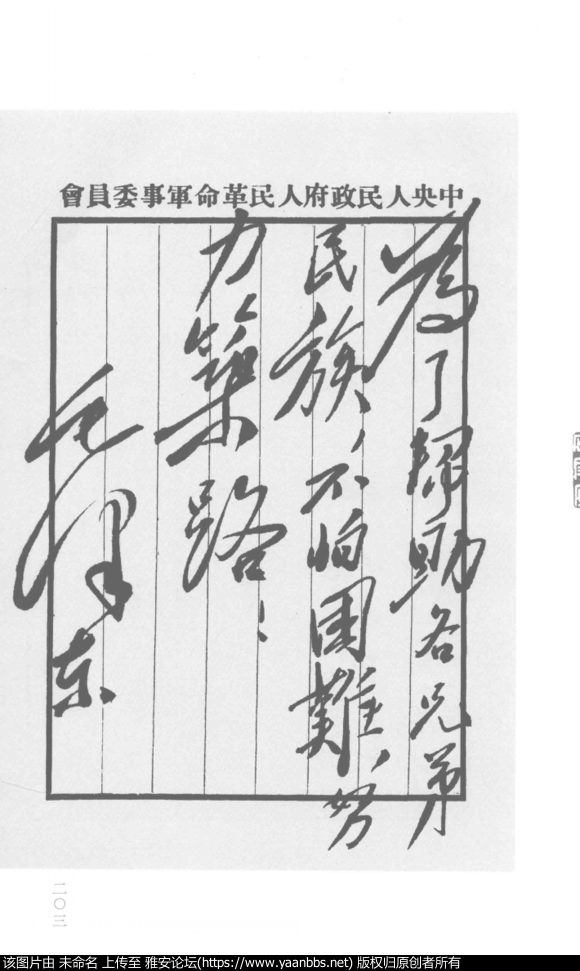 中央人民政府人民革命軍事委員會
為了帮助各兄弟
民族，不怕困難，努
力築路！
毛澤东
二〇三
该图片由 未命名 上传至 雅安论坛(https://www.yaanbbs.net) 版权归原创者所有